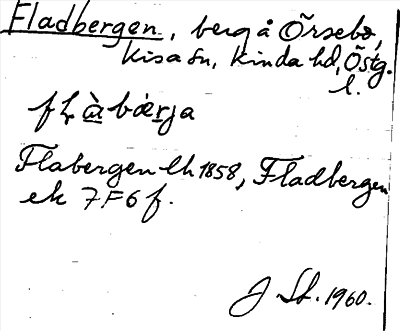 Fladbergen, berg å Örsebo,
Kisa sn, Kinda hd, Östg.
l.
fḷàbœ́rja
Flabergen lk 1858, Fladbergen
ek 7F6f.
J St. 1960.